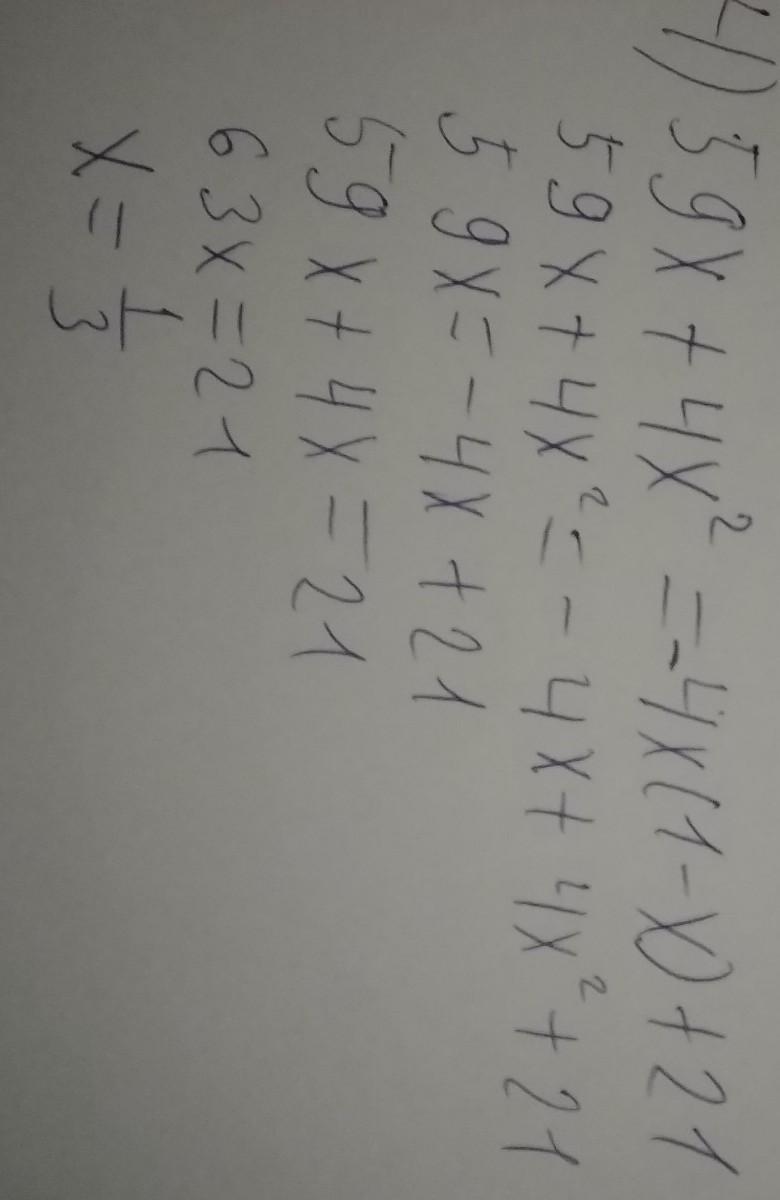 4) 59x + 4x² = -4x(1-x) + 21
59x + 4x² = -4x + 4x² + 21
59x = -4x + 21
59x + 4x = 21
63x = 21
x = 1/3